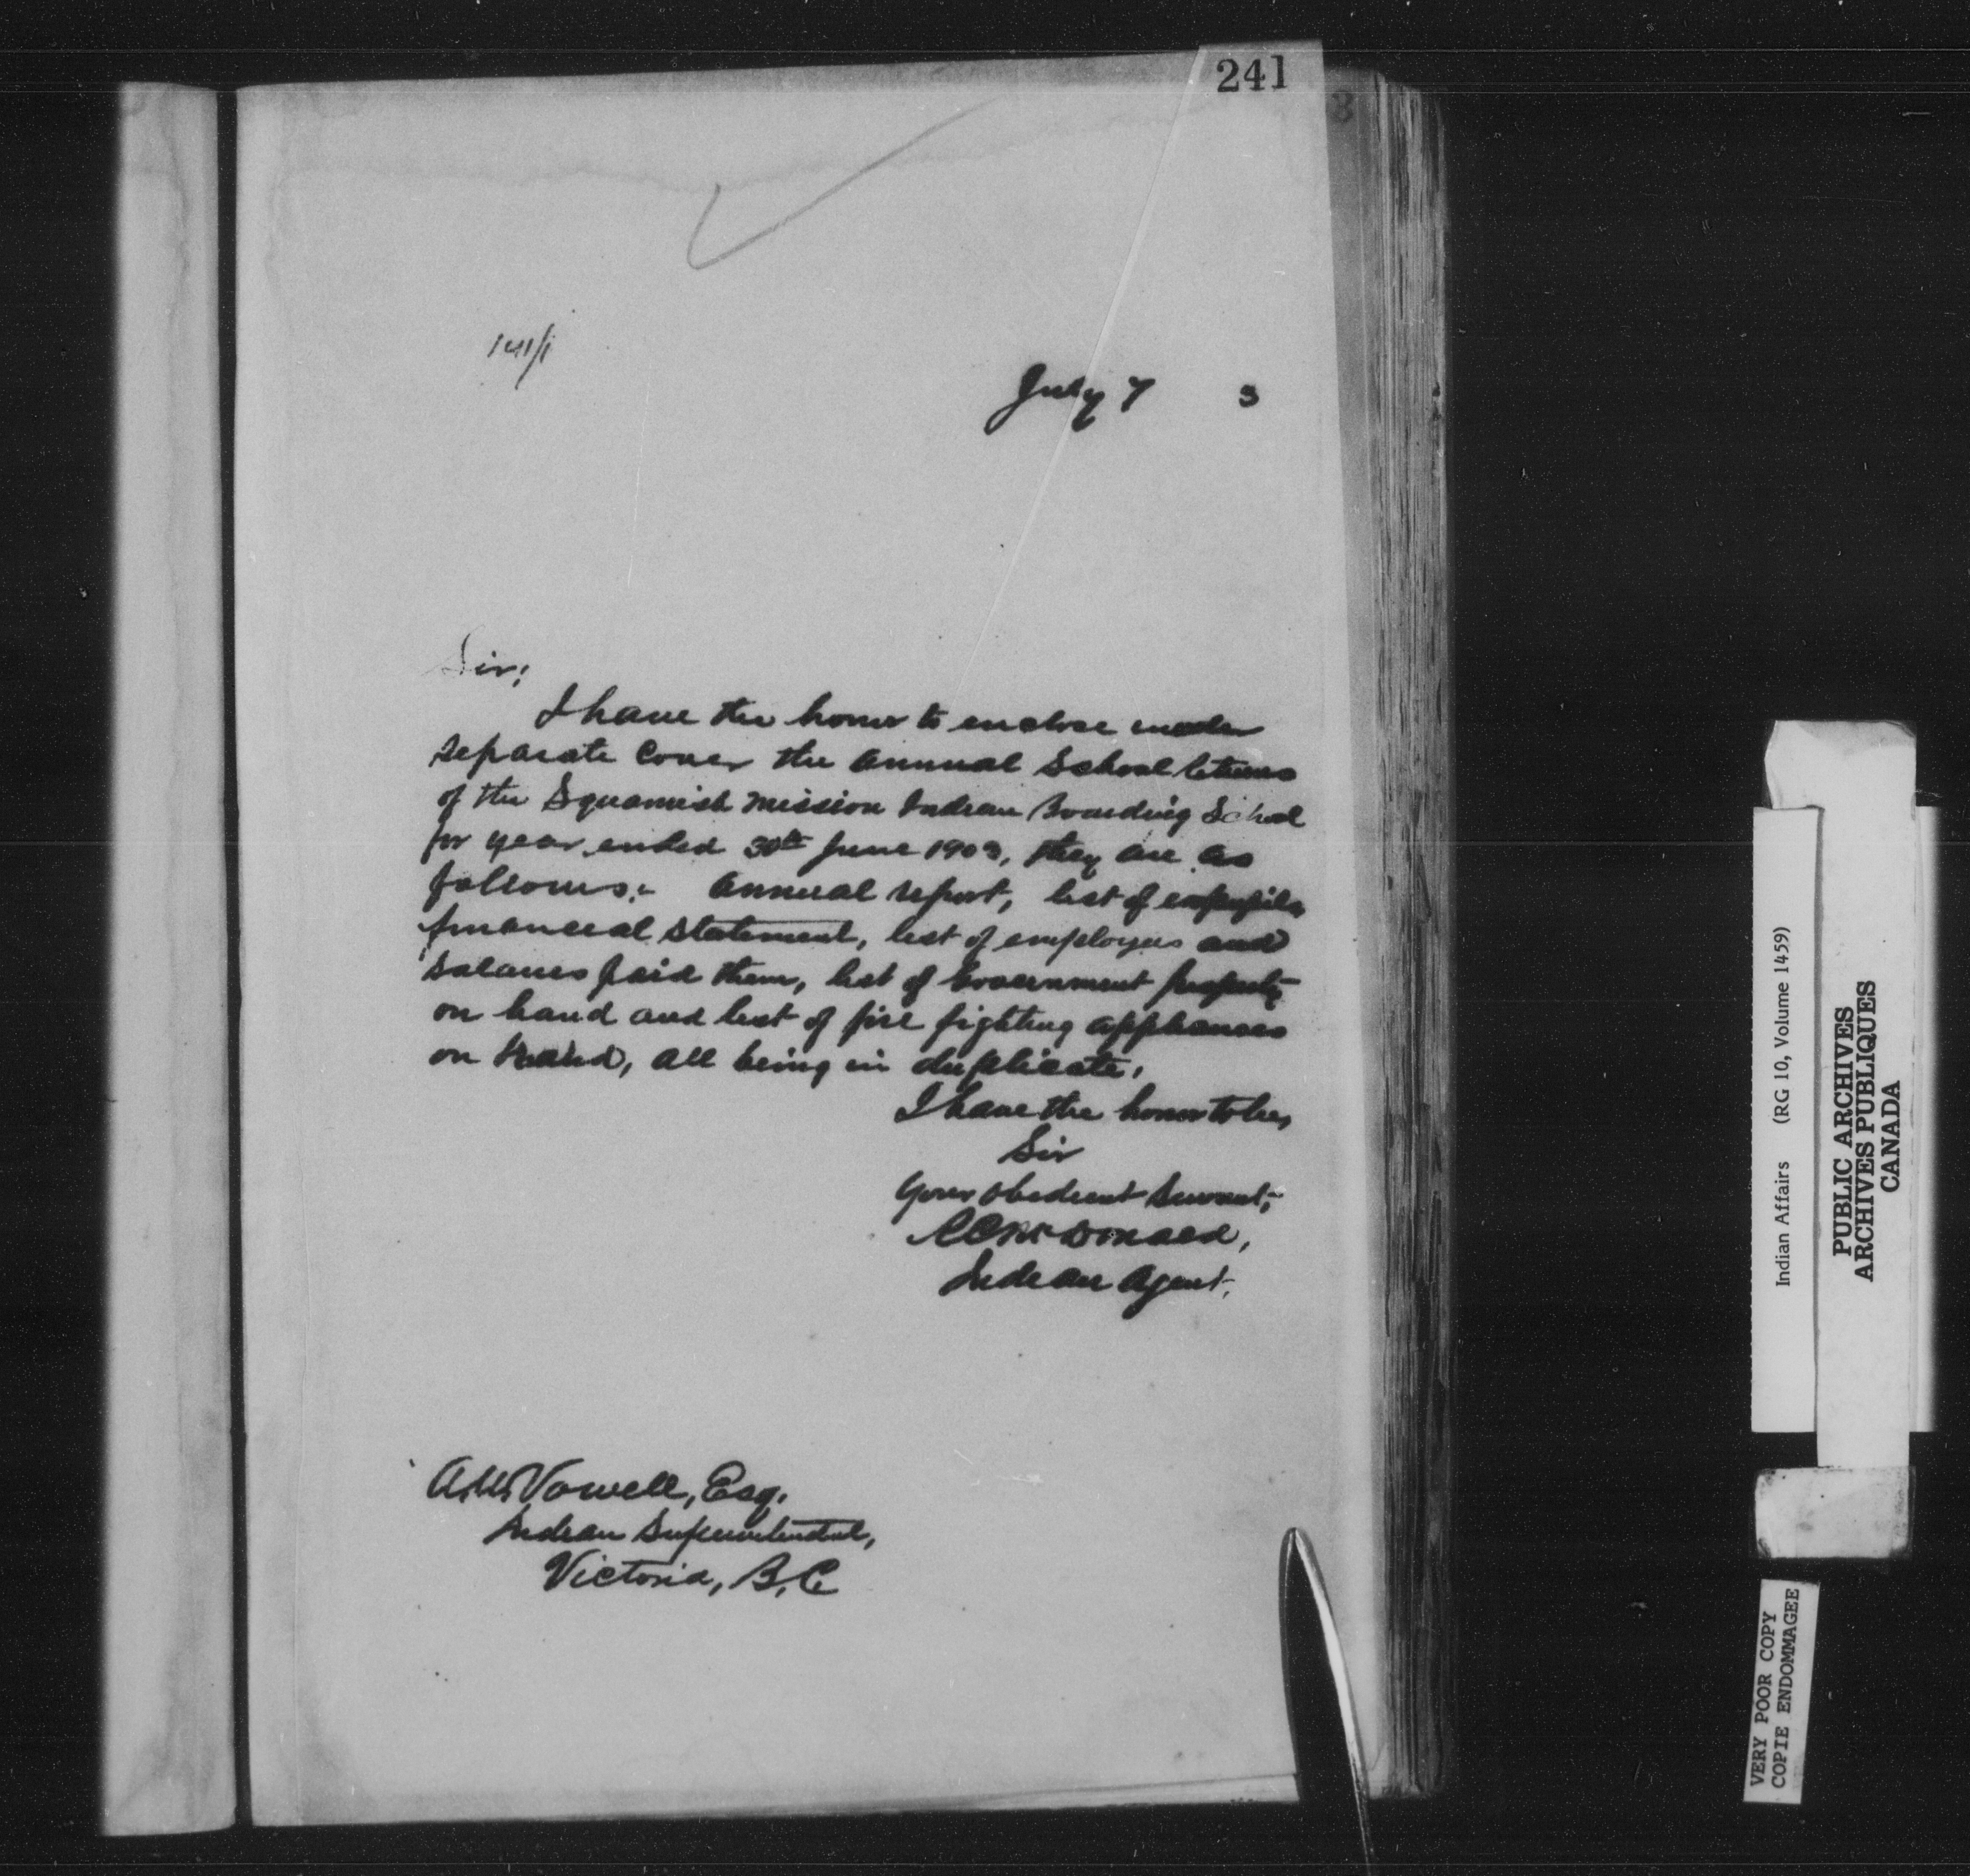 241
141/1
July 7 3
Sir;
I have the honor to enclose under
separate cover the annual School
of the Squamish Mission Indian Boarding School
for year ended 30th June 1903, they are as
follows:- annual report, list of
financial statement, list of employees and
salaries paid them, list of Government property
on hand and list of fire fighting appliances
on hand, all being in duplicate.
I have the honor to be,
Sir
Your obedient Servant,
McDonald,
Indian Agent.
A.W. Vowell, Esq.
Indian Superintendent,
Victoria, B.C
Indian Affairs (RG 10, Volume 1459)
PUBLIC ARCHIVES
ARCHIVES PUBLIQUES
CANADA
VERY POOR COPY
COPIE ENDOMMAGEE